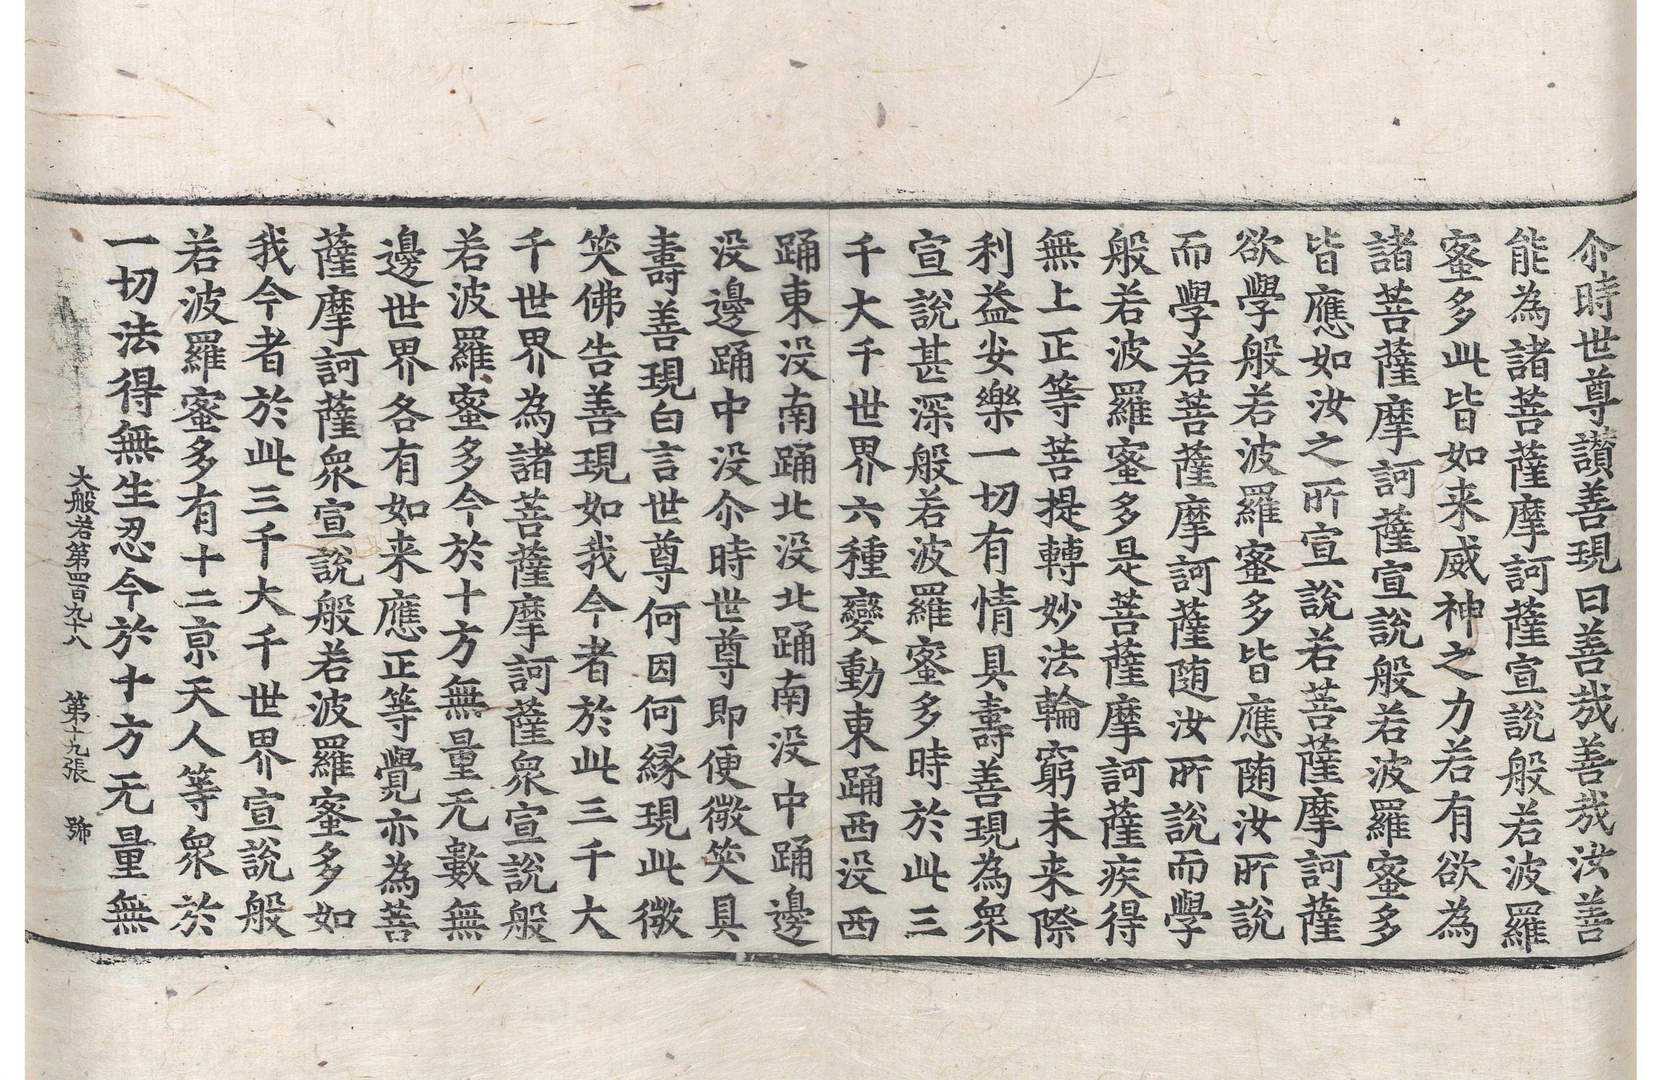 尒時世尊讃善現曰善㢤善㢤汝善
能為諸菩薩摩訶薩宣說般若波羅
蜜多此皆如来威神之力若有欲為
諸菩薩摩訶薩宣說般若波羅蜜多
皆應如汝之所宣說若菩薩摩訶薩
欲學般若波羅蜜多皆應随汝所說
而學若菩薩摩訶薩随汝所說而學
般若波羅蜜多是菩薩摩訶薩疾得
無上正等菩提轉妙法輪窮未来際
利益安樂一切有情具壽善現為衆
宣說甚深般若波羅蜜多時於此三
千大千世界六種變動東踊西没西
踊東没南踊北没北踊南没中踊邊
没邊踊中没尒時世尊即便微笑具
壽善現白言世尊何因何縁現此微
笑佛告善現如我今者於此三千大
千世界為諸菩薩摩訶薩衆宣說般
若波羅蜜多今於十方無量无數無
邊世界各有如来應正等覺亦為菩
薩摩訶薩衆宣說般若波羅蜜多如
我今者於此三千大千世界宣說般
若波羅蜜多有十二㐪天人等衆於
一切法得無生忍今於十方无量無
大般若第四百九十八 第十九張 號